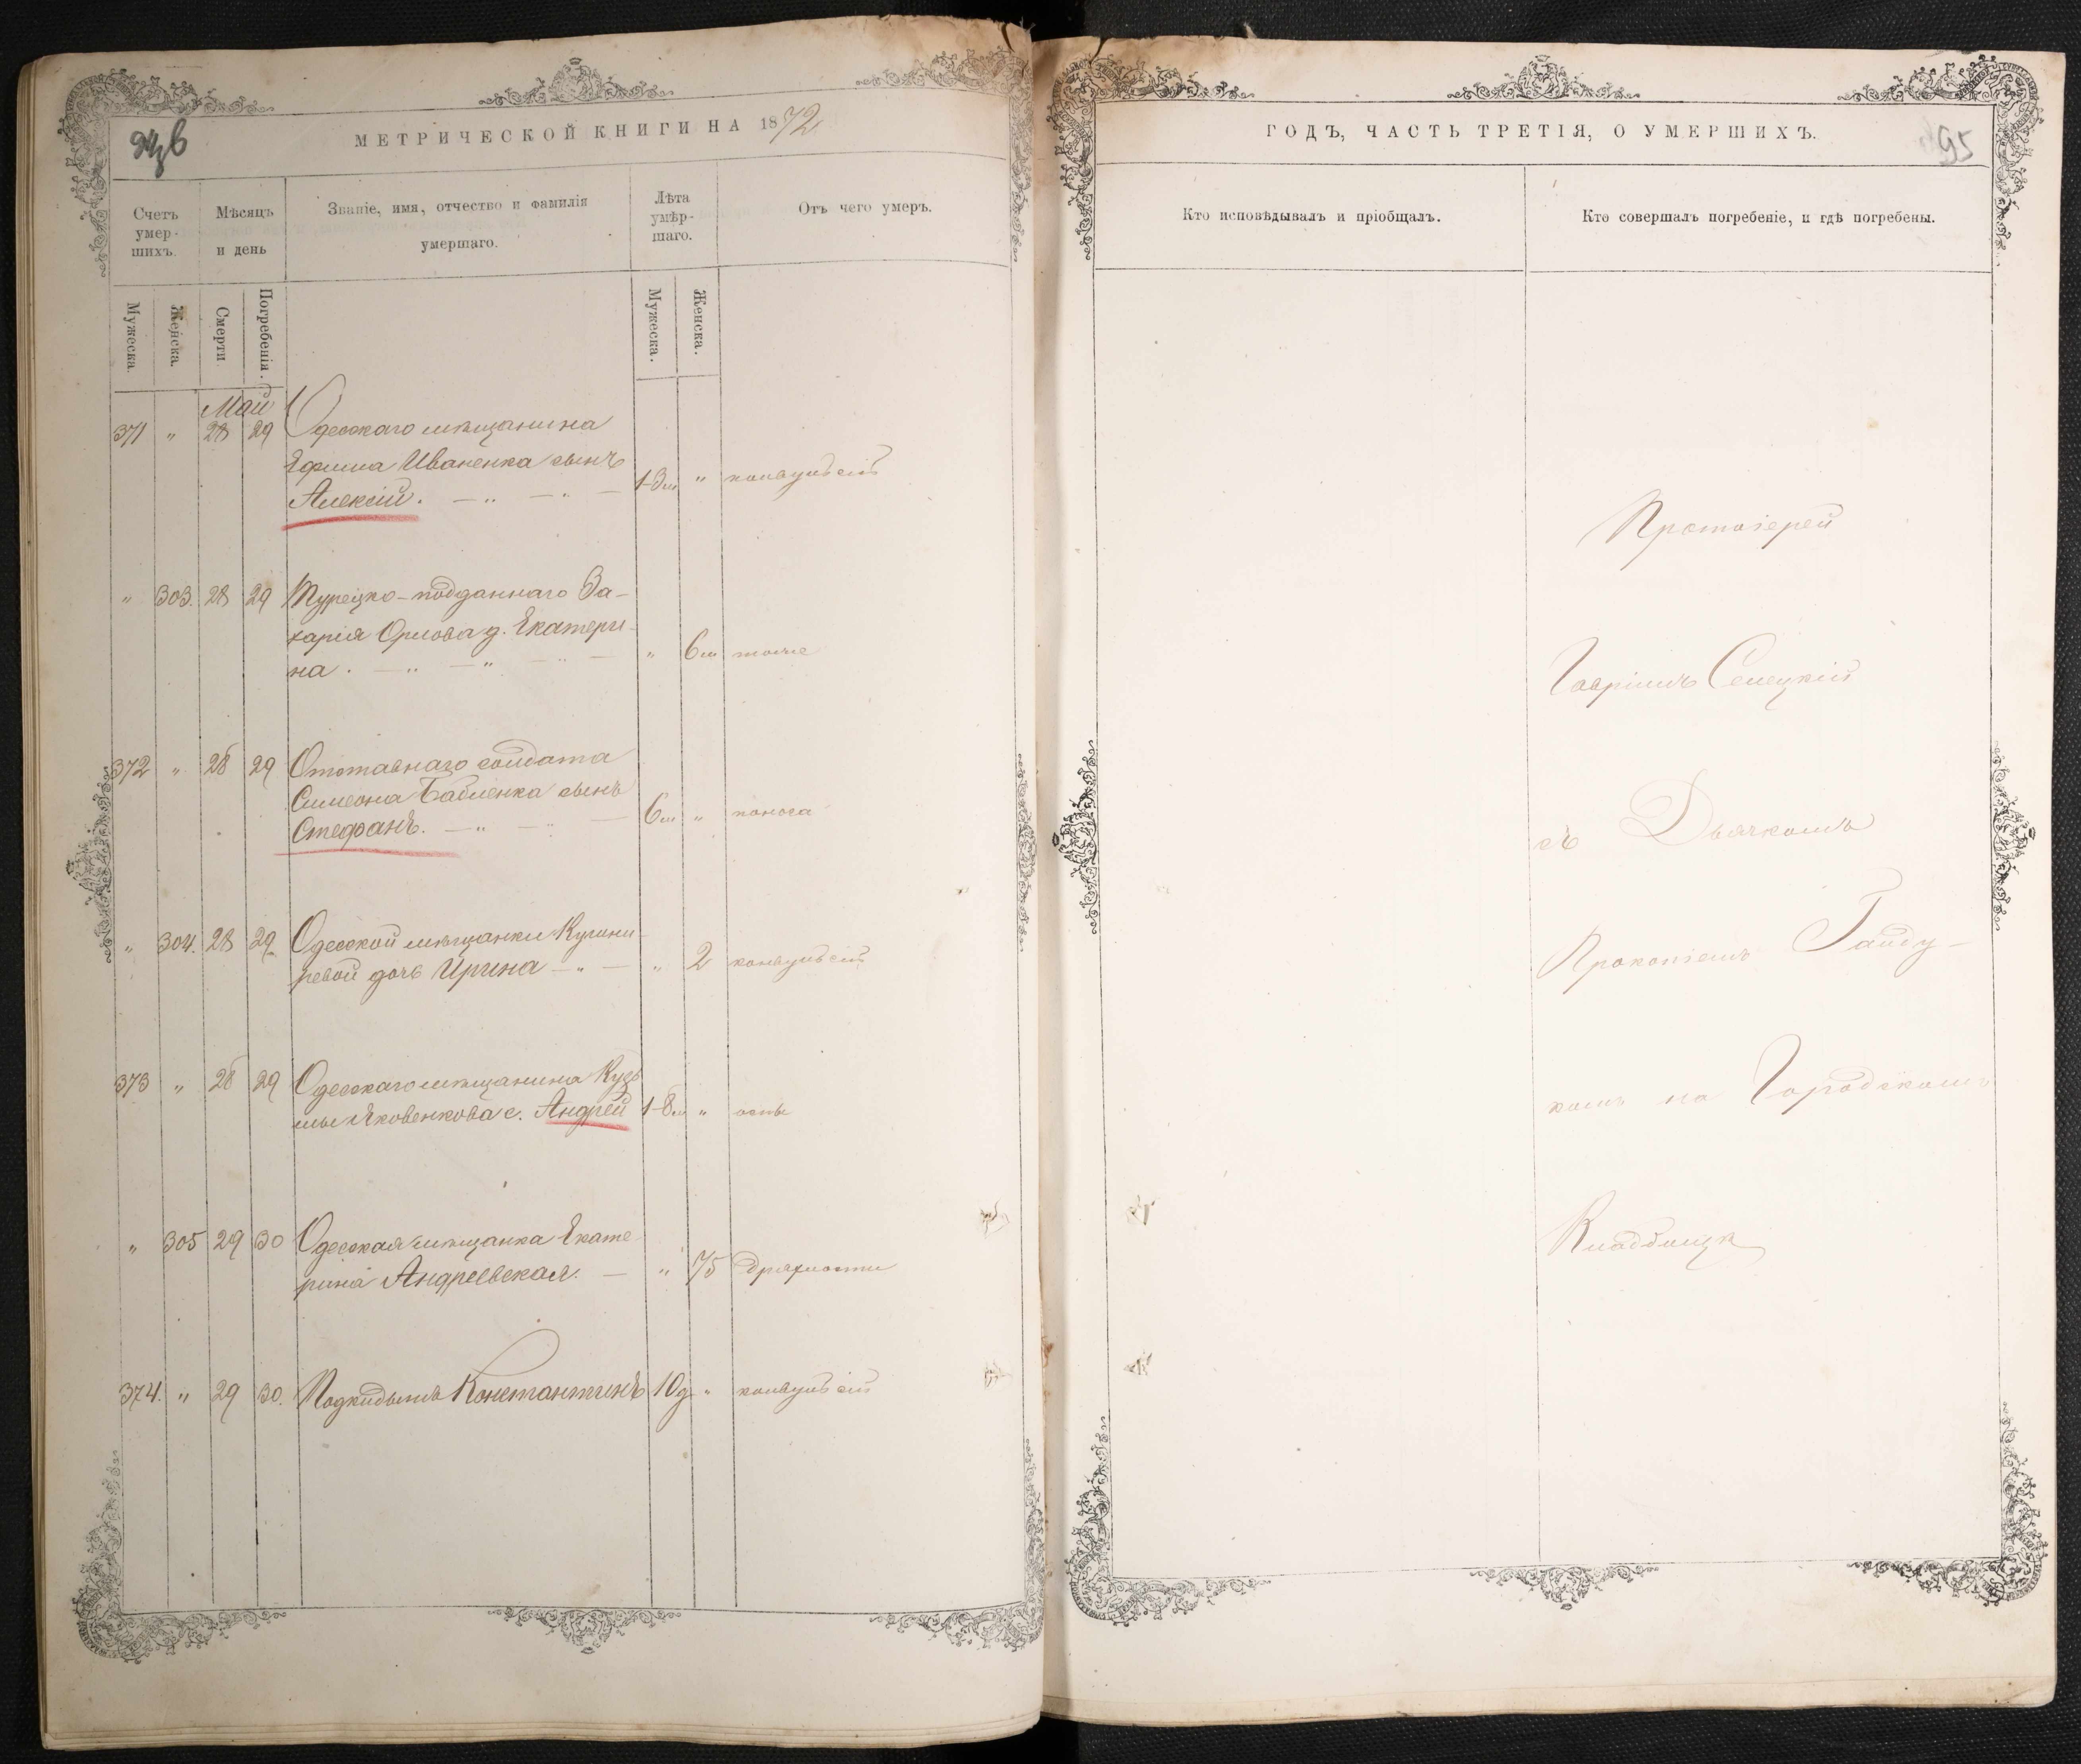 МЕТРИЧЕСКОЙ КНИГИ НА 1872
Счетъ умер-шихъ.
Мѣсяцъ и день
Званіе, имя, отчество и фамилія умершаго.
Лѣта умёр-шаго.
Отъ чего умеръ.
Мужеска.
Женска.
Смерти
Погребенія.
Мужеска.
Женска.
Май
371 " 28 29 Одесскаго мѣщанина
Ефима Иваненка сынъ
Алексій. 1-3м " конвульсій
" 303. 28 29 Турецко-подданнаго За-
харія Орлова д. Екатери-
на. " 6м тоже
372 " 28 29 Отставнаго солдата
Симеона Бабіенка сынъ
Стефанъ. 6м " поноса
" 304. 28 29 Одесской мѣщанки
ревой дочь Ирина " 2 конвульсій
373 " 28 29 Одесскаго мѣщанина Кузь
мы Яковенкова с. Андрей 1-8м " оспы
" 305 29 30 Одесская мѣщанка Екате
рина Андреевская. " 75 дряхлости
374. " 29 30. Подкидышъ Константинъ 10д " конвульсій
ГОДЪ, ЧАСТЬ ТРЕТІЯ, О УМЕРШИХЪ.
95
Кто исповѣдывалъ и пріобщалъ.
Кто совершалъ погребеніе, и гдѣ погребены.
Протоіерей
Гавріилъ Селецкій
съ Дьячкомъ
Прокопіемъ Гайду-
комъ на Городскомъ
Кладбищѣ